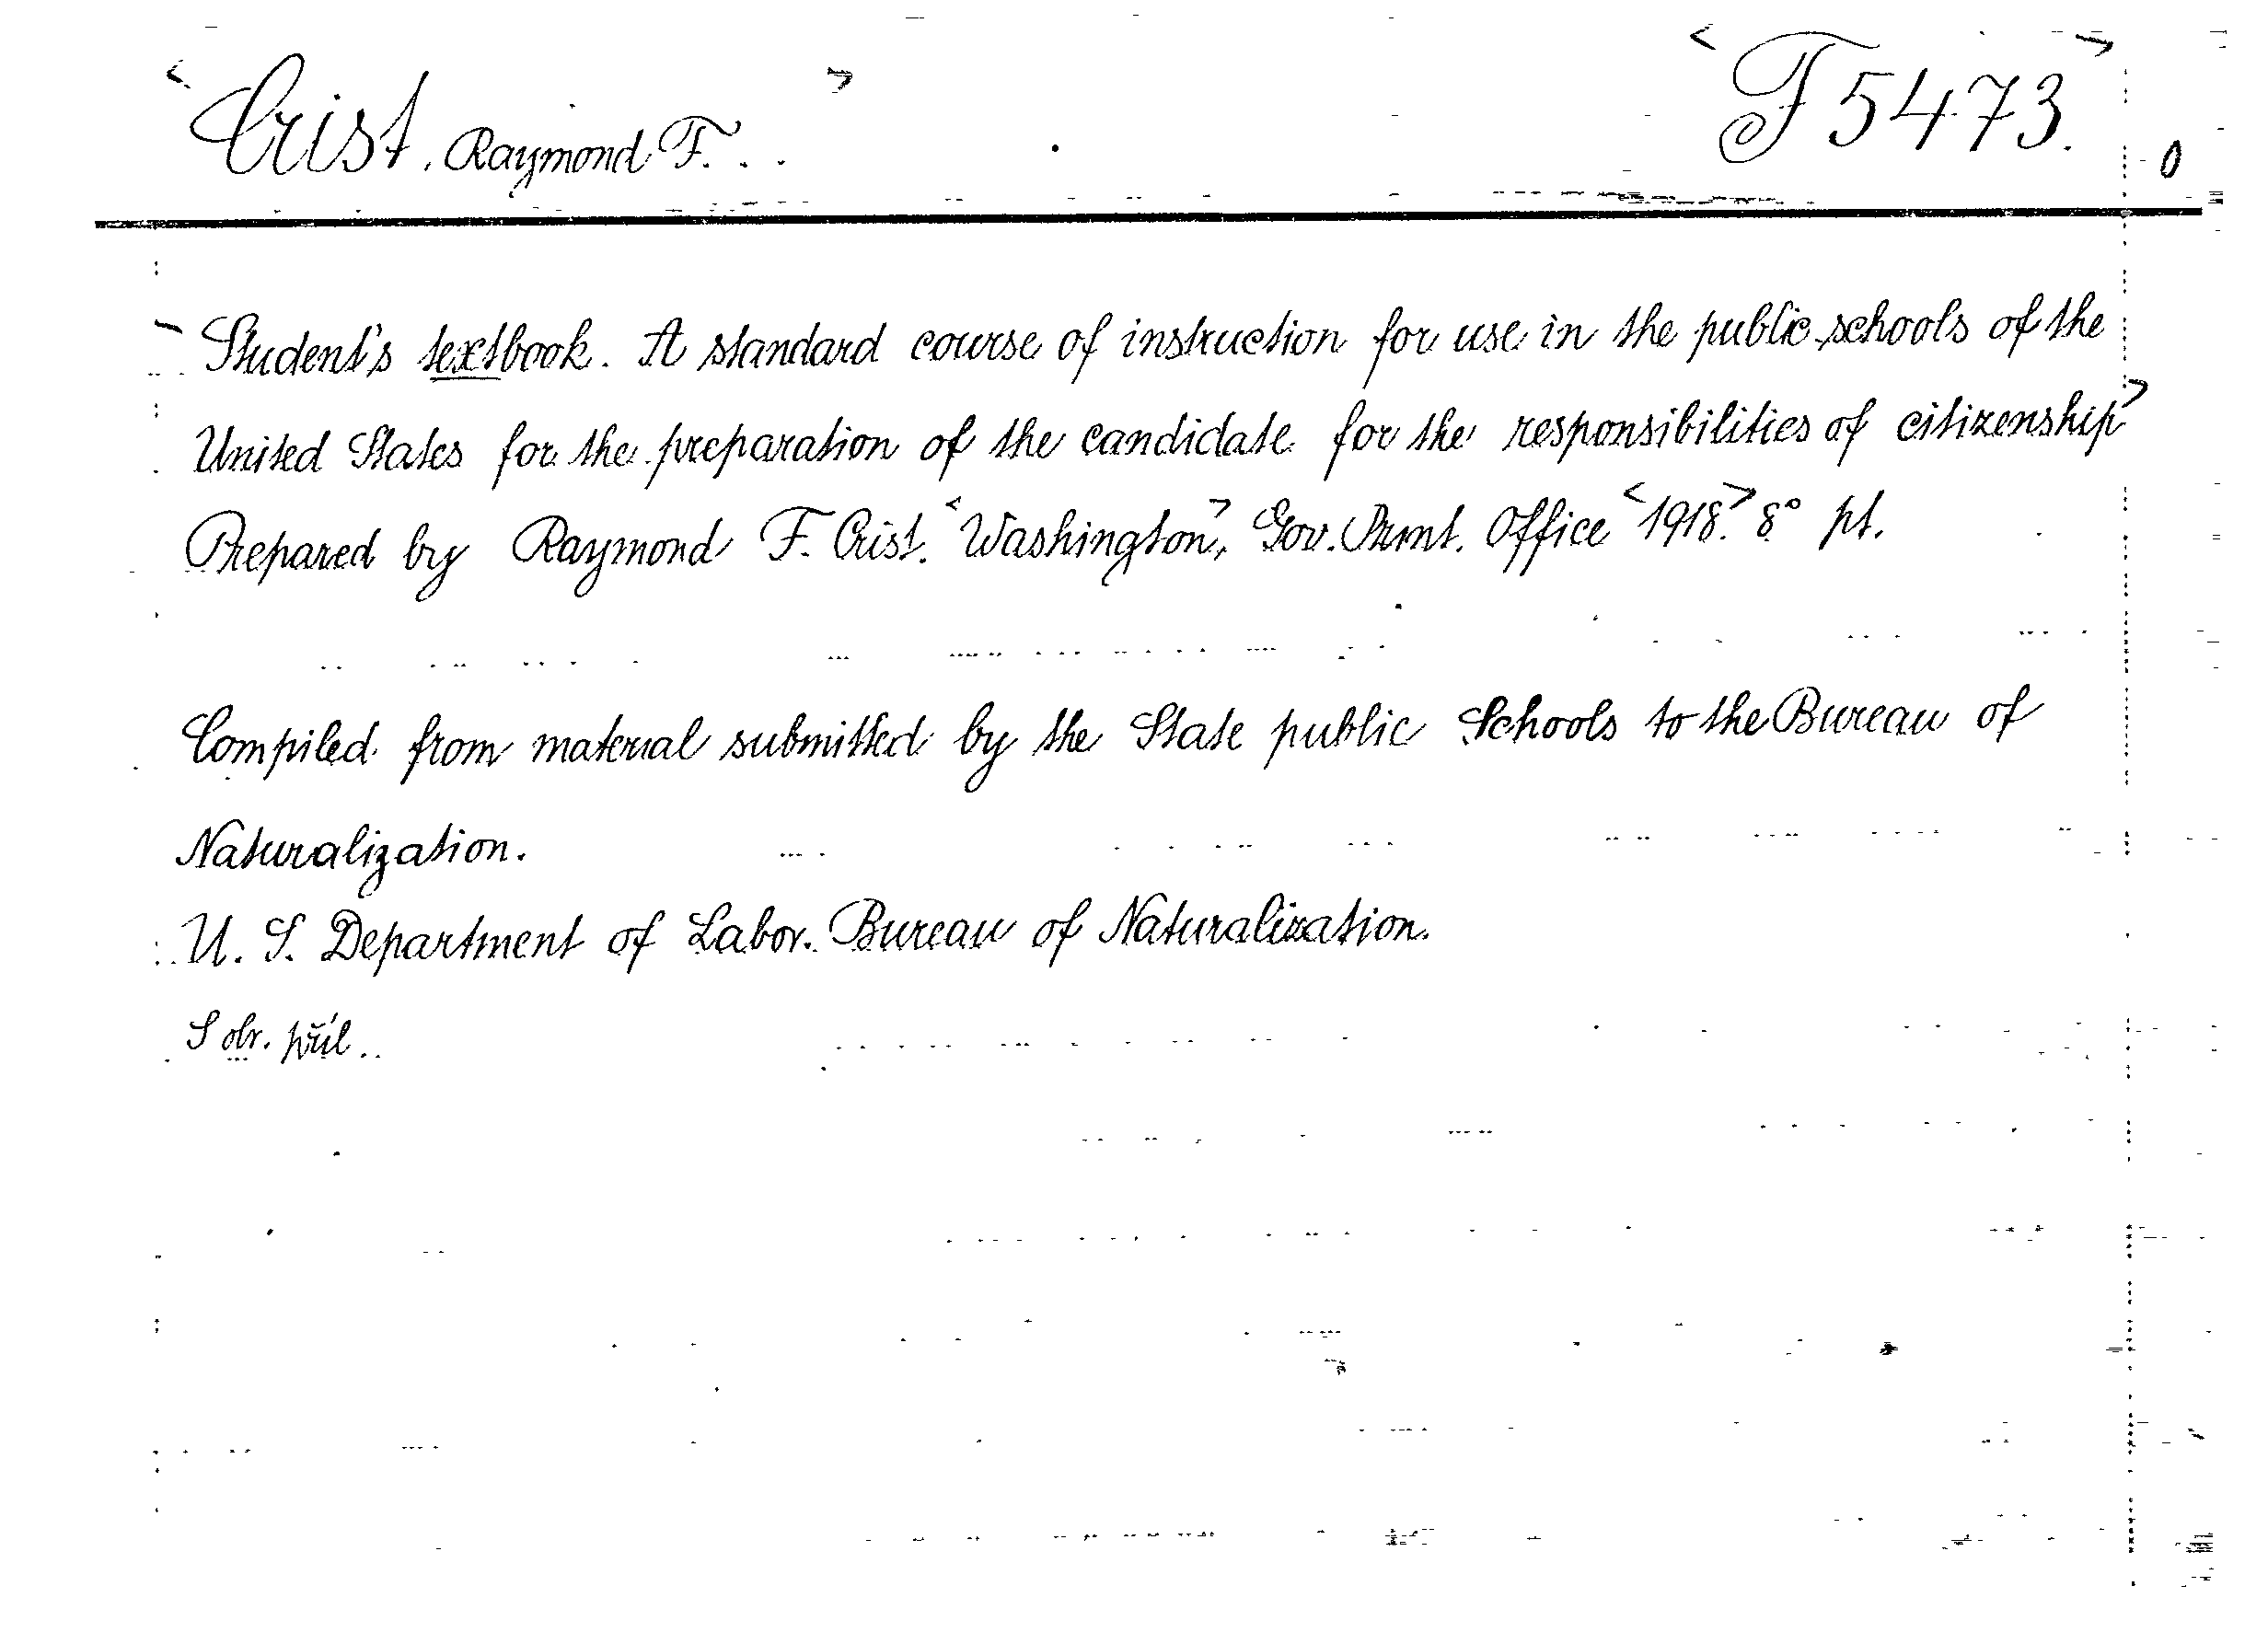 <Crist, Raymond F.> <F 5473.> 0
Student's textbook. A standard course of instruction for use in the public schools of the
United States for the preparation of the candidate for the responsibilities of citizenship>
Prepared by Raymond F. Crist. <Washington>, Gov. Prmt. Office <1918.> 8° pt.
Compiled from material submitted by the State public Schools to the Bureau of
Naturalization.
U. S. Department of Labor. Bureau of Naturalization.
S obr. příl.